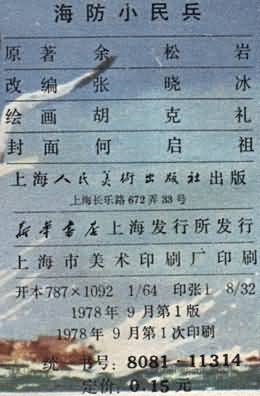 海防小民兵
原著 余松岩
改编 张晓冰
绘画 胡克礼
封面 何启祖
上海人民美术出版社出版
上海长乐路672弄33号
新华书店上海发行所发行
上海市美术印刷厂印刷
开本787×1092 1/64 印张1 8/32
1978年9月第1版
1978年9月第1次印刷
统一书号：8081·11314
定价：0.15元